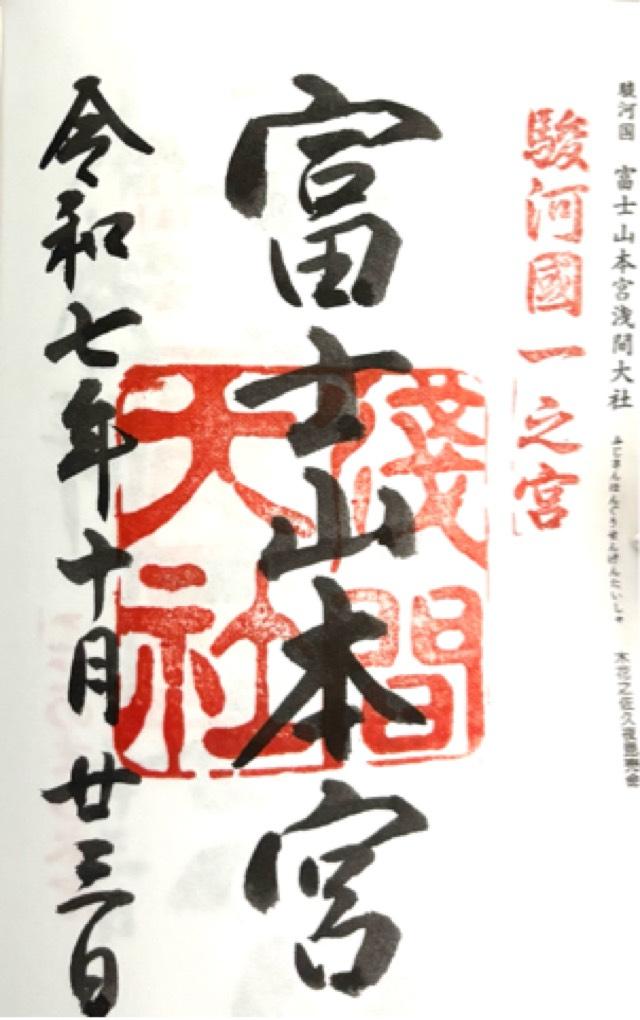 駿河国 富士山本宮浅間大社 ふじさんほんぐうせんげんたいしゃ
駿河國一之宮
富士山本宮
淺間大社
令和七年十月廿三日